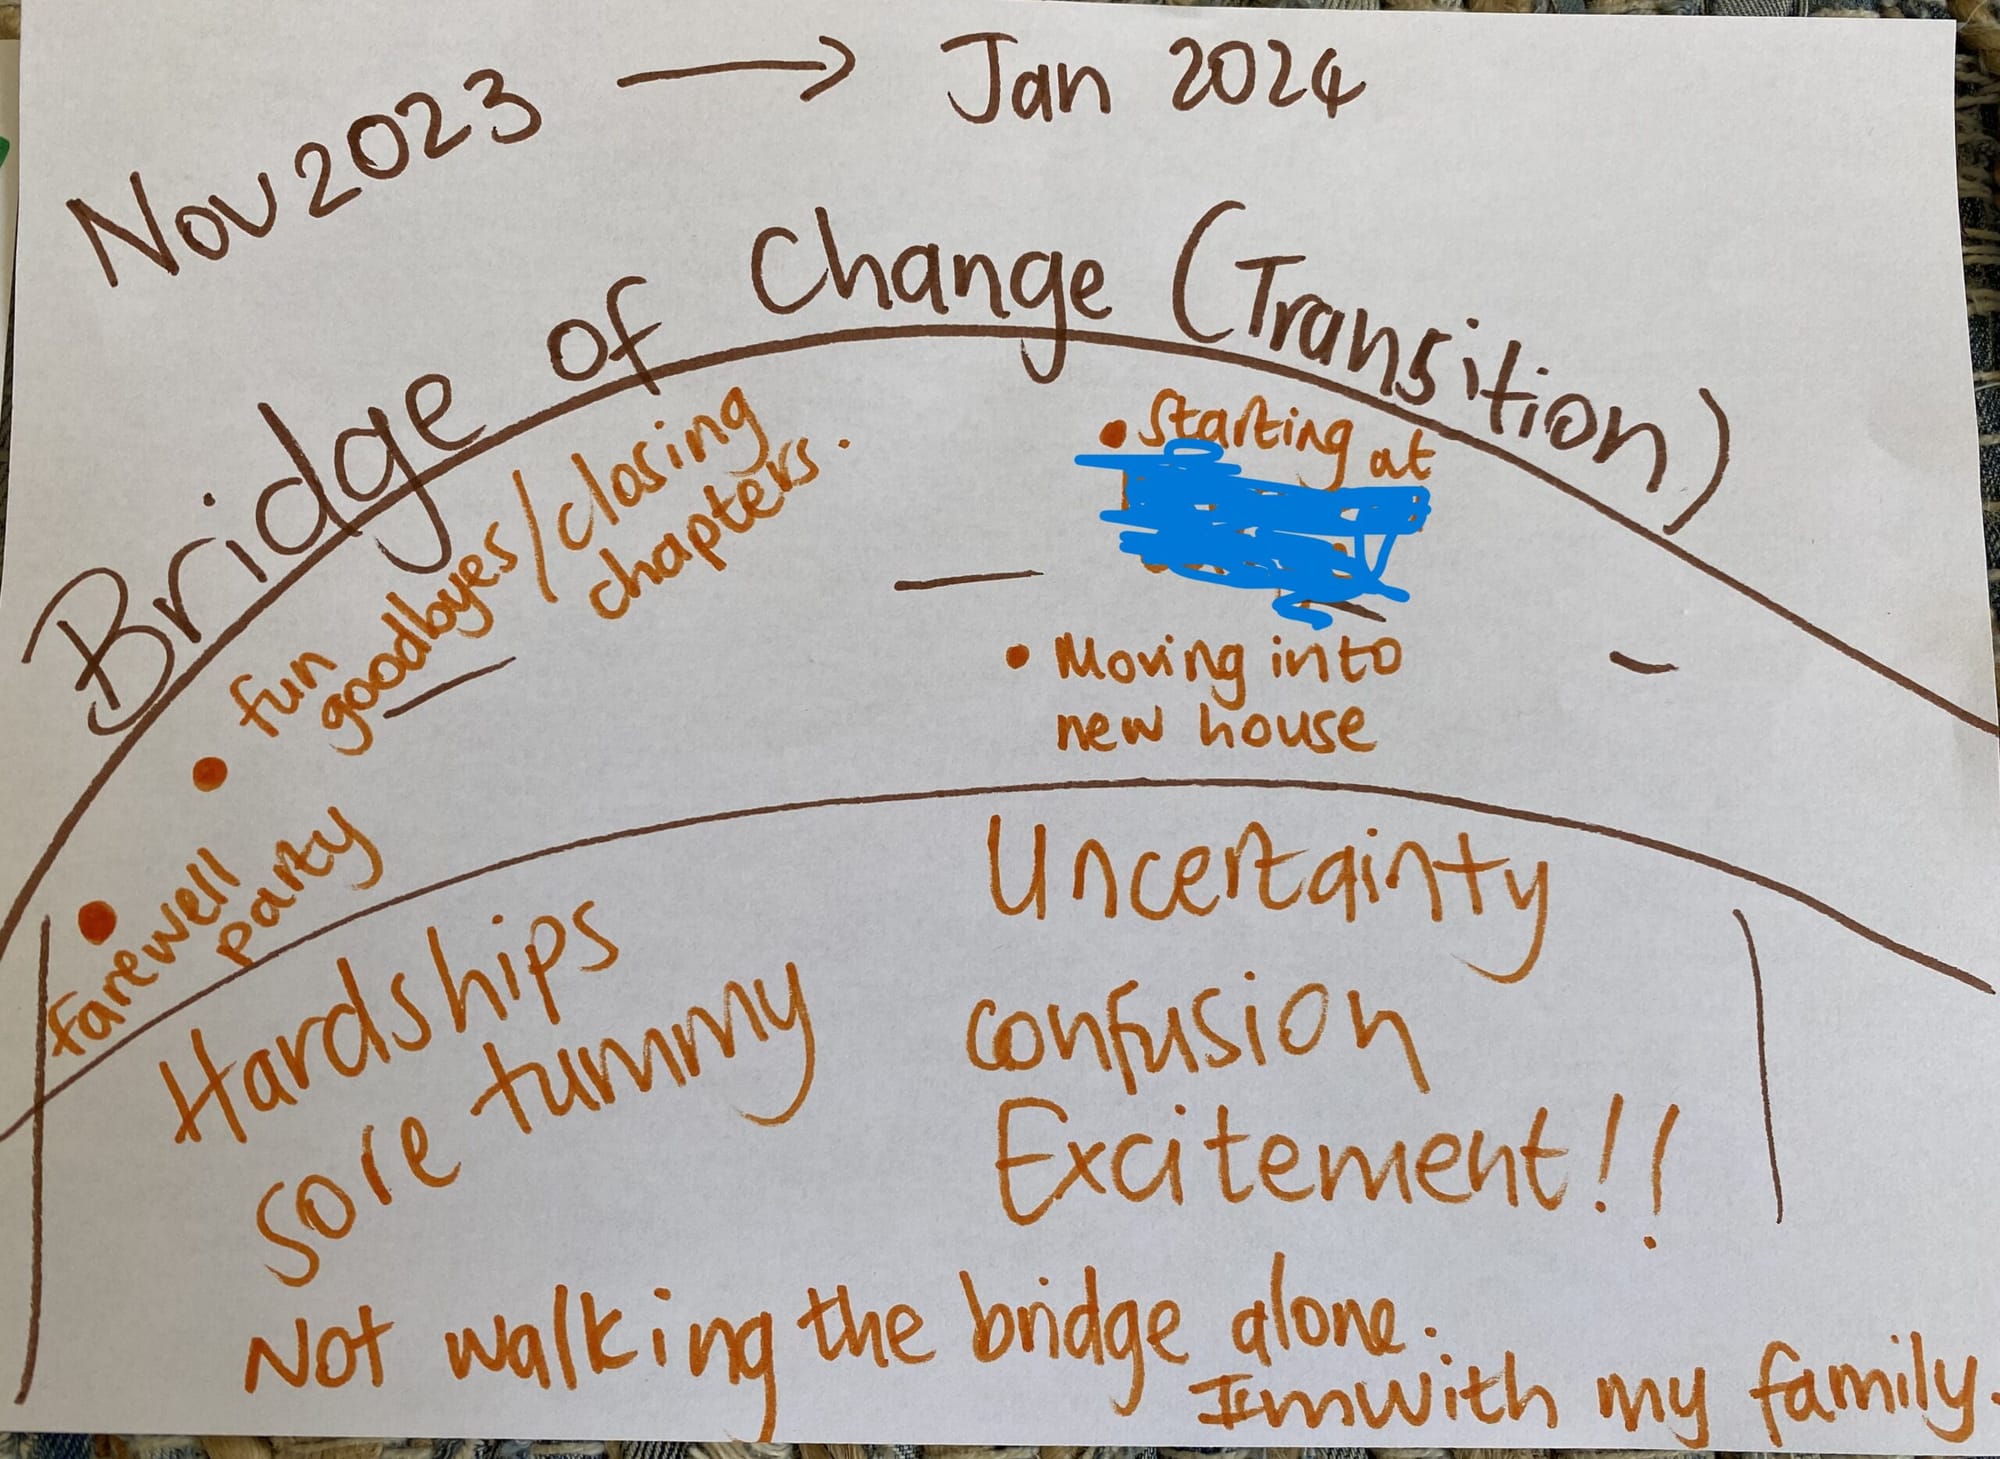 Nov 2023 → Jan 2024
Bridge of Change (Transition)
• farewell
party
• fun
goodbyes/closing
chapters.
• Starting at
• Moving into
new house
Hardships
sore tummy
Uncertainty
confusion
Excitement!!
Not walking the bridge alone.
Im with my family.